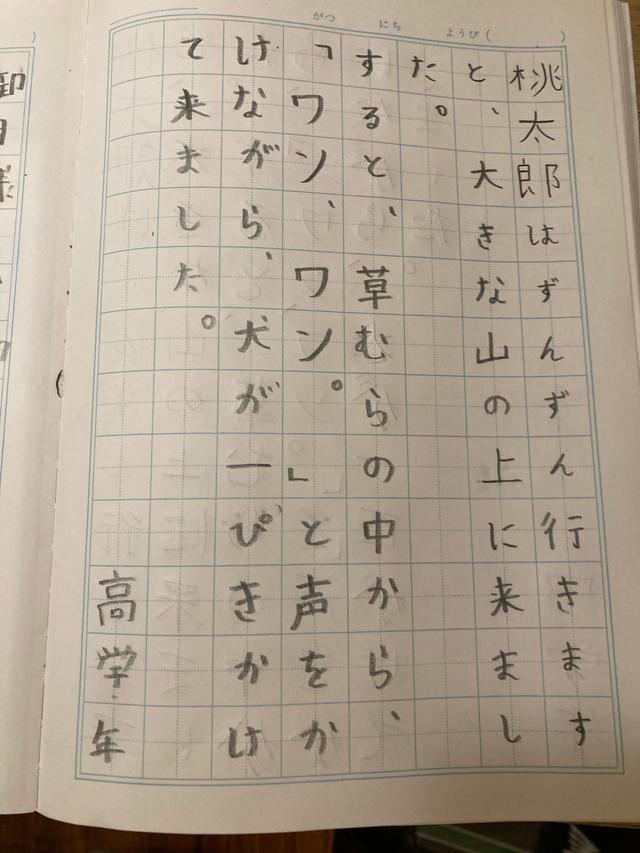 がつ にち ようび( )
桃太郎はずんずん行きます
と、大きな山の上に来まし
た。
すると、草むらの中から、
「ワン、ワン。」と声をか
けながら、犬が一ぴきかけ
て来ました。
高学年